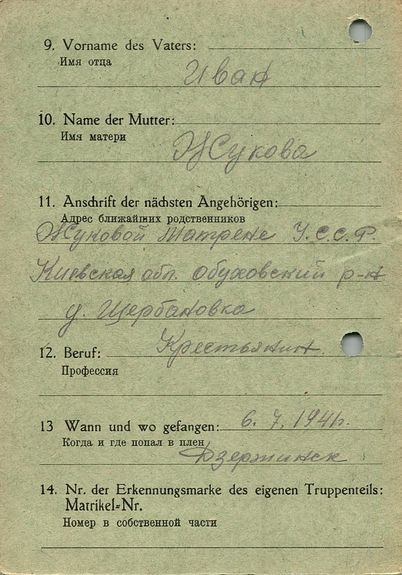 9. Vorname des Vaters:
Имя отца
Иван
10. Name der Mutter:
Имя матери
Жукова
11. Anschrift der nächsten Angehörigen:
Адрес ближайших родственников
Жуковой Матрене У.С.С.Р.
Киевская обл. Обуховский р-н
д. Щербановка
12. Beruf: Крестьянин
Профессия
13 Wann und wo gefangen: 6. 7. 1941г.
Когда и где попал в плен
Дзержинск
14. Nr. der Erkennungsmarke des eigenen Truppenteils:
Matrikel-Nr.
Номер в собственной части